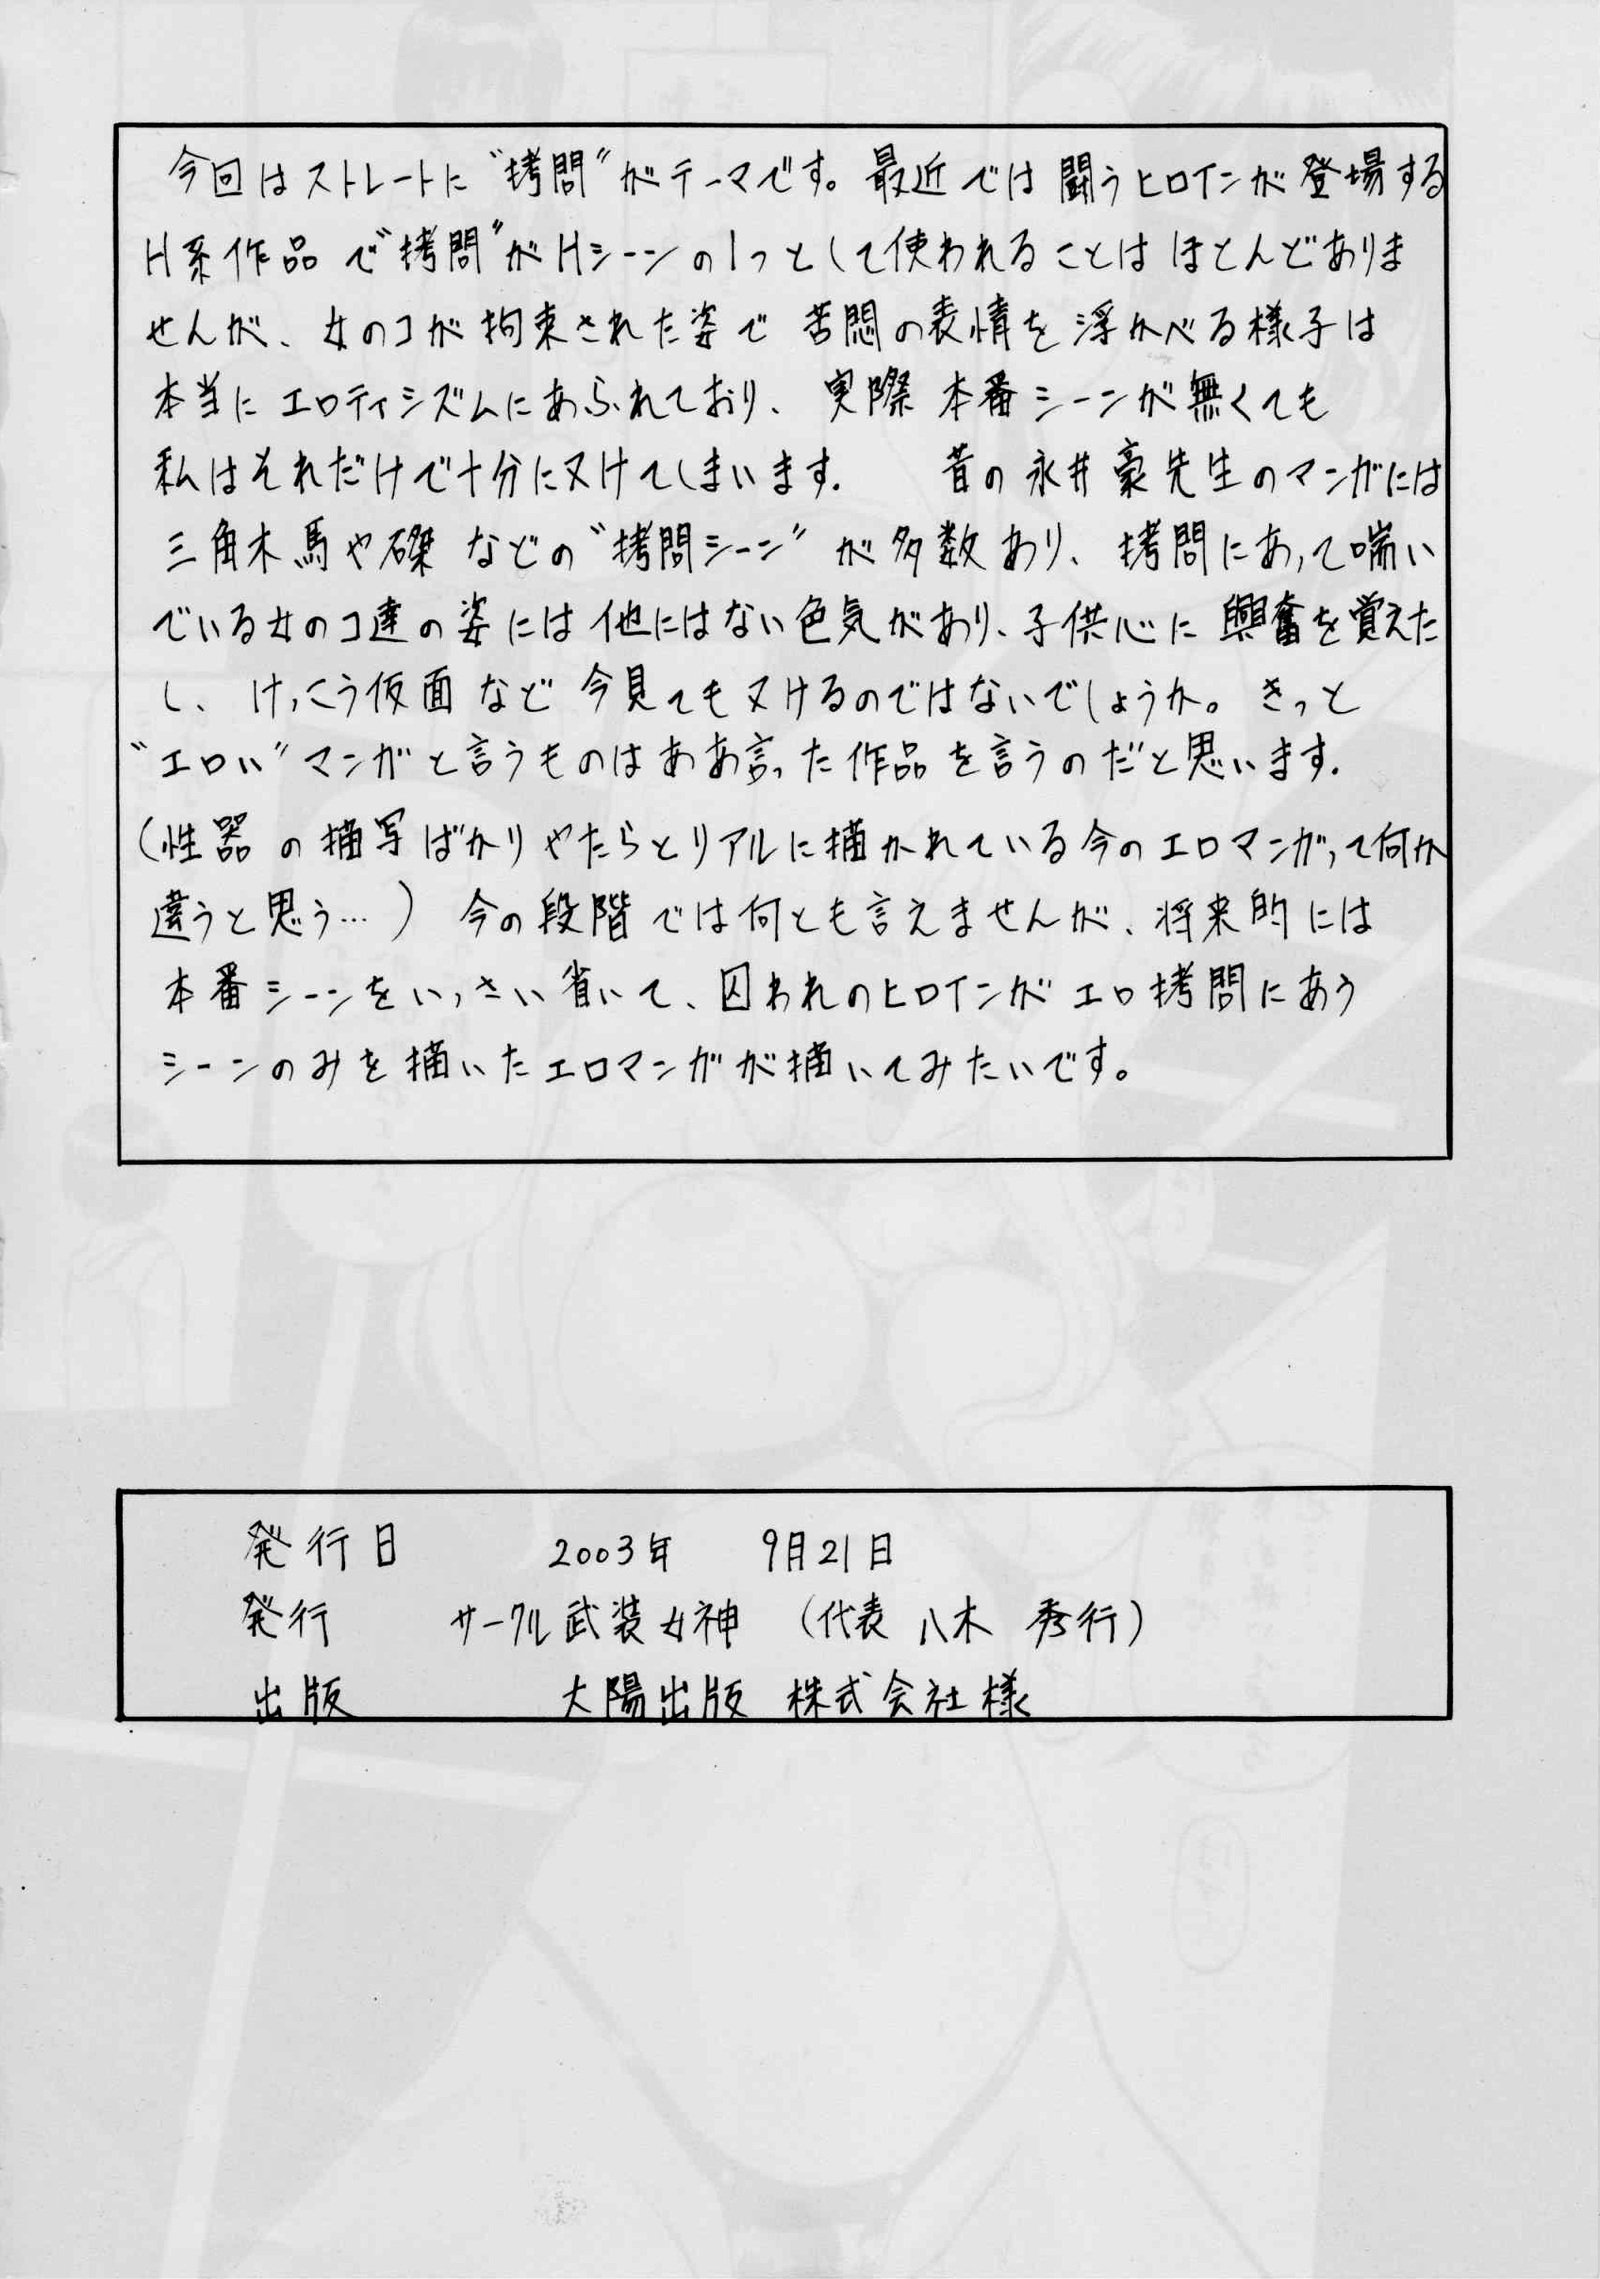 今回はストレートに“拷問”がテーマです。最近では闘うヒロインが登場する
H系作品で“拷問”がHシーンの1つとして使われることはほとんどありま
せんが、女のコが拘束された姿で苦悶の表情を浮かべる様子は
本当にエロティシズムにあふれており、実際本番シーンが無くても
私はそれだけで十分にヌけてしまいます. 昔の永井豪先生のマンガには
三角木馬や磔などの“拷問シーン”が多数あり、拷問にあって喘い
でいる女のコ達の姿には他にはない色気があり、子供心に興奮を覚えた
し、けっこう仮面など今見てもヌけるのではないでしょうか。きっと
“エロい”マンガと言うものはああ言った作品を言うのだと思います.
(性器の描写ばかりやたらとリアルに描かれている今のエロマンガって何か
違うと思う…) 今の段階では何とも言えませんが、将来的には
本番シーンをいっさい省いて、囚われのヒロインがエロ拷問にあう
シーンのみを描いたエロマンガが描いてみたいです。
発行日 2003年 9月21日
発行 サークル武装女神 (代表 八木 秀行)
出版 大陽出版 株式会社様